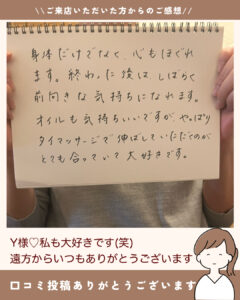 \\ご来店いただいた方からのご感想//
身体だけでなく、心もほぐれ
ます。終わった後は、しばらく
前向きな気持ちになれます。
オイルも気持ちいいですが、やっぱり
タイマッサージで伸ばしていただくのが
とても合っていて大好きです。
Y様♡私も大好きです(笑)
遠方からいつもありがとうございます
口コミ投稿ありがとうございます